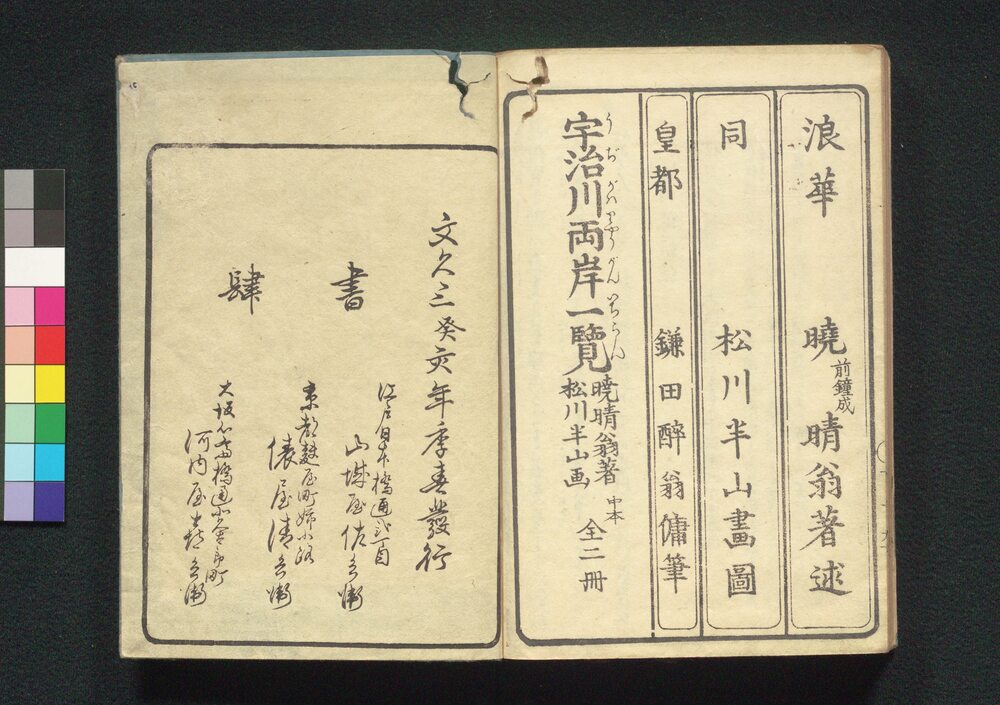 浪華 暁晴翁著述
前鐘成
同 松川半山畫圖
皇都 鎌田醉翁傭筆
宇治川両岸一覧
うぢがはりやうがんいちらん
暁晴翁著
松川半山画
中本
全二冊
文久三癸亥年季春發行
書肆
江戸日本橋通弐丁目
山城屋佐兵衛
京都麩屋町姉小路
俵屋清兵衛
大坂心斎橋通北久太郎町
河内屋喜兵衛